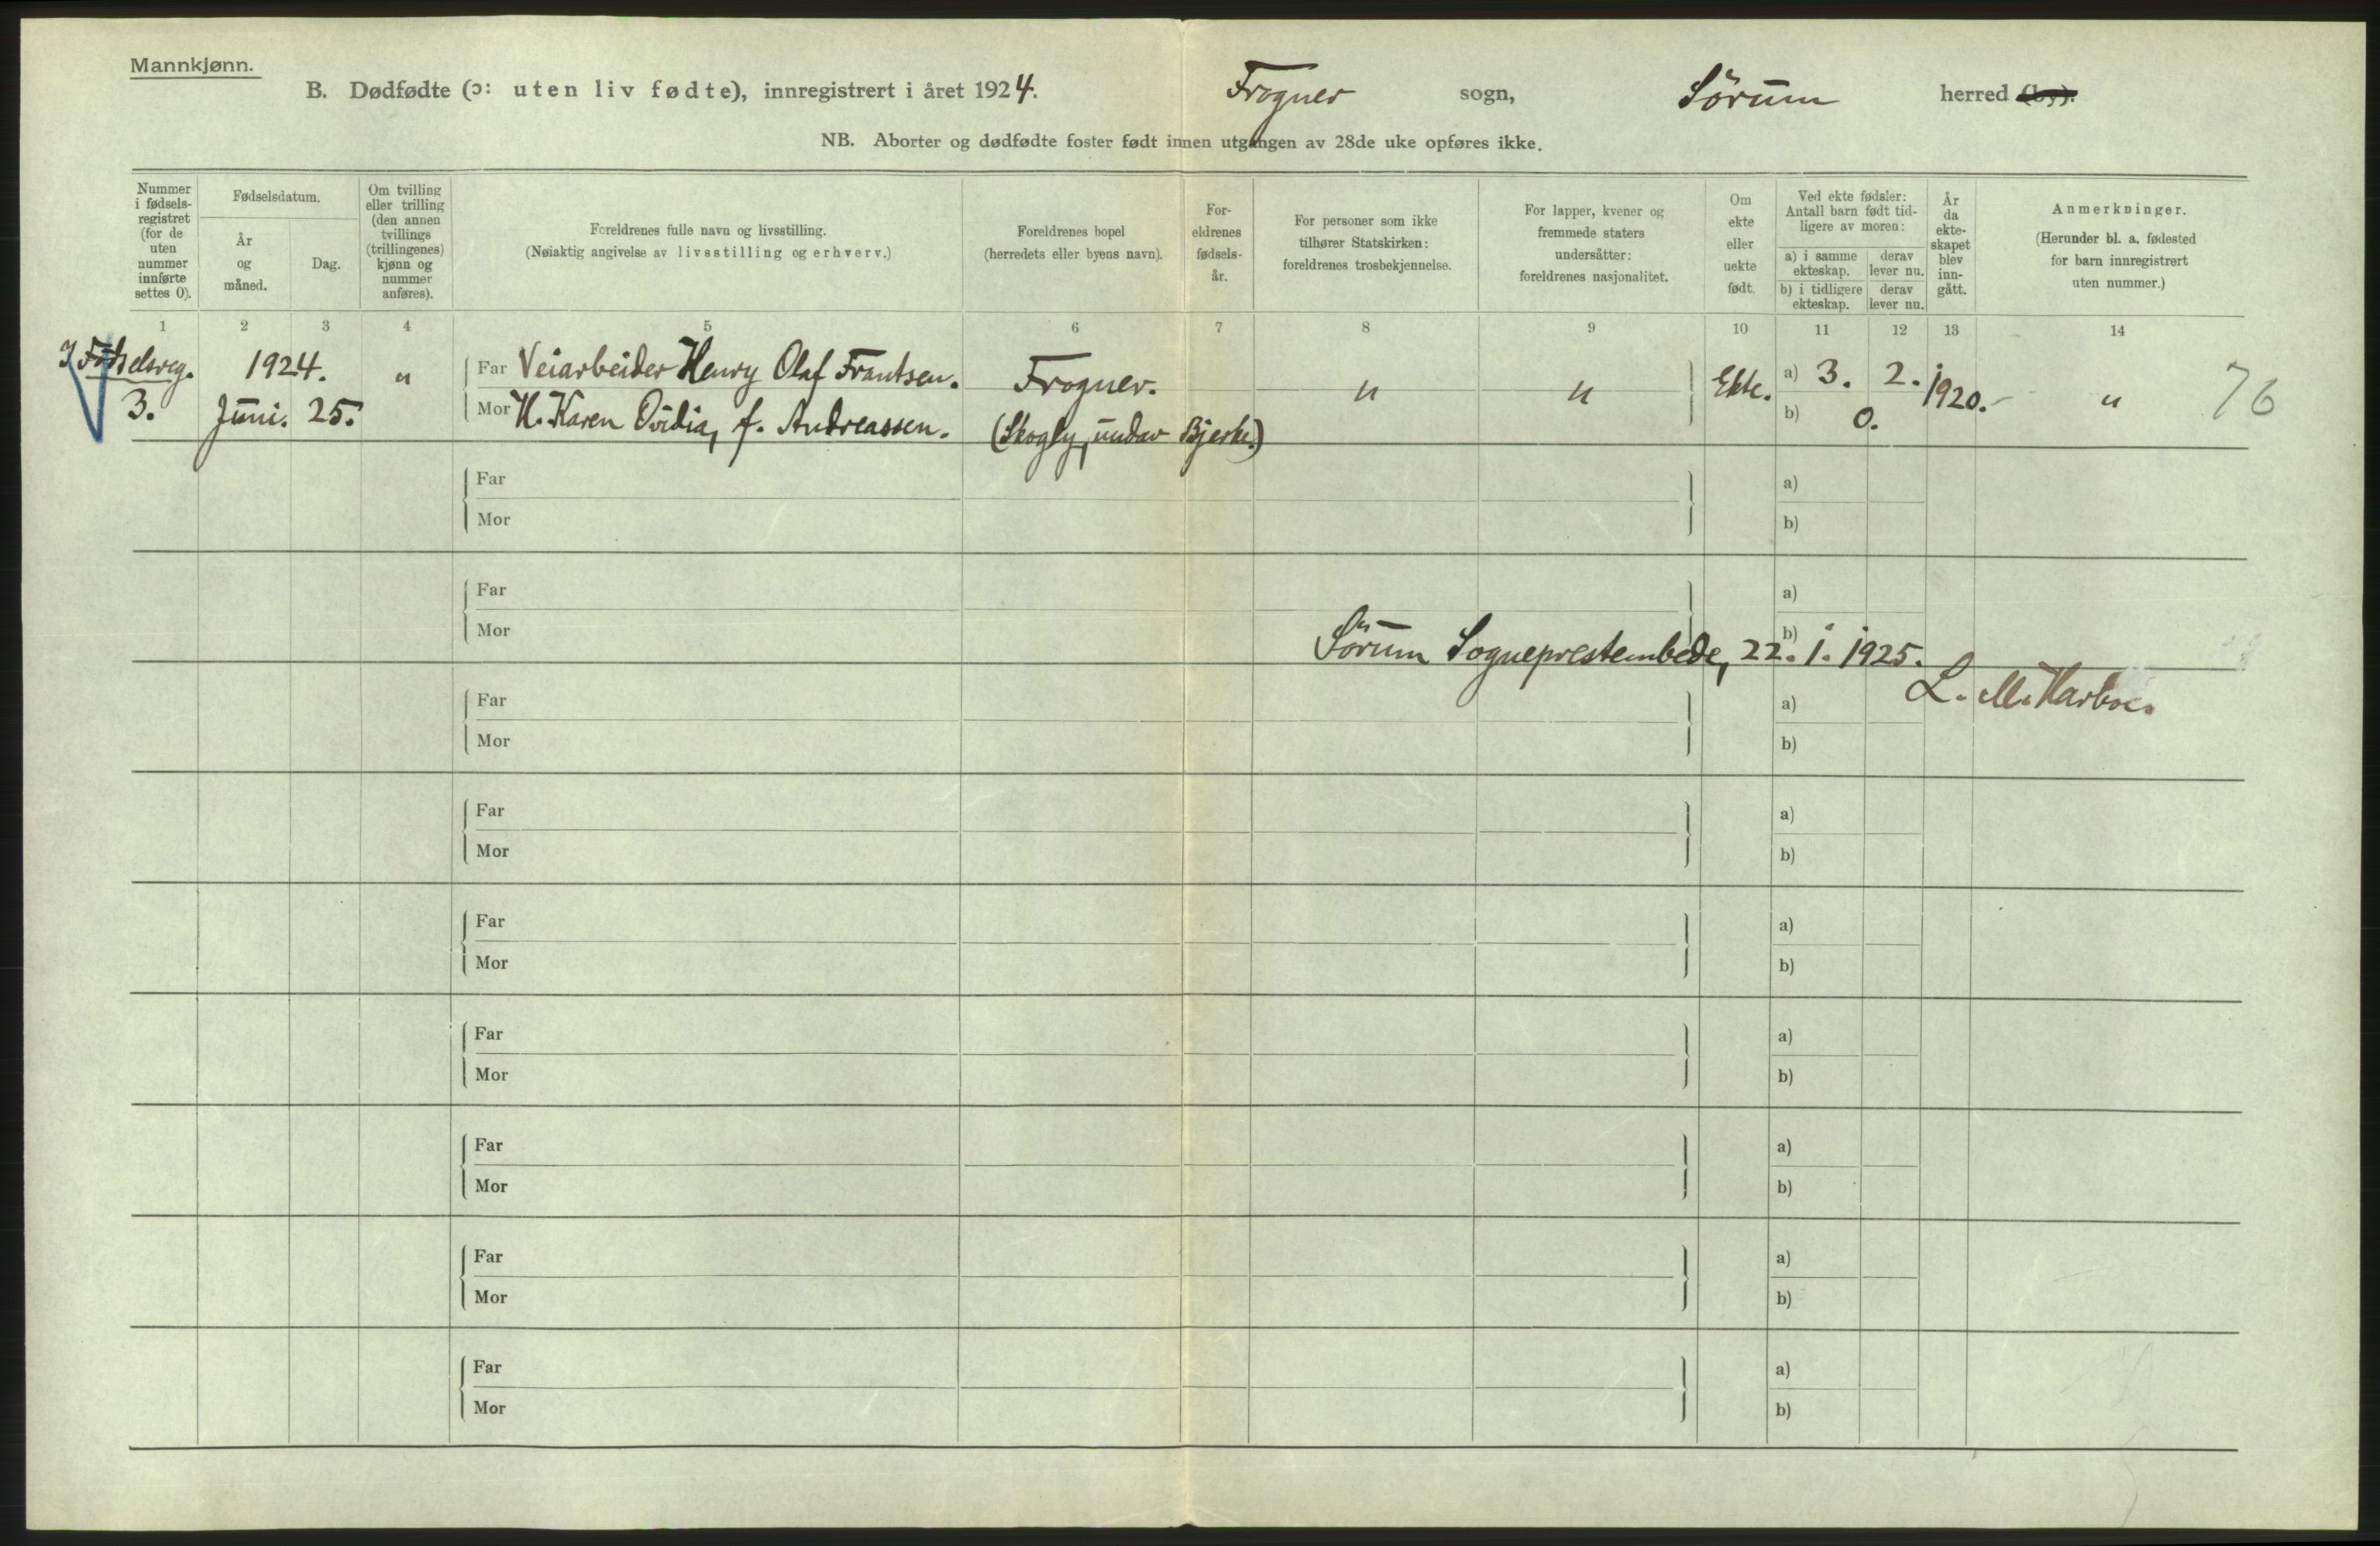 Mannkjønn.
B. Dødfødte (ɔ: uten liv fødte), innregistrert i året 1924. Frogner sogn, Sörum herred (by).
NB. Aborter og dødfødte foster født innen utgangen av 28de uke opføres ikke.
Nummer i fødsels-registret (for de uten nummer innførte settes 0).
Fødselsdatum.
År og måned.
Dag.
Om tvilling eller trilling (den annen tvillings (trillingenes) kjønn og nummer anføres).
Foreldrenes fulle navn og livsstilling.
(Nøiaktig angivelse av livsstilling og erhverv.)
Foreldrenes bopel
(herredets eller byens navn).
For-eldrenes fødsels-år.
For personer som ikke tilhører Statskirken: foreldrenes trosbekjennelse.
For lapper, kvener og fremmede staters undersåtter: foreldrenes nasjonalitet.
Om ekte eller uekte født.
Ved ekte fødsler: Antall barn født tid-ligere av moren:
a) i samme ekteskap. derav lever nu.
b) i tidligere ekteskap. derav lever nu.
År da ekte-skapet blev inn-gått.
Anmerkninger.
(Herunder bl. a. fødested for barn innregistrert uten nummer.)
1 2 3 4 5 6 7 8 9 10 11 12 13 14
I Fødselsreg. 1924. " Far Veiarbeider Henry Olaf Frantsen. Frogner. " " Ekte. a) 3. 2. 1920.- " 76
3. Juni. 25. Mor H. Karen Ovidia, f. Andreassen. (Skogly, undar Bjerke.) b) 0.
Far a)
Mor b)
Far a)
Mor b)
Sörum Sogneprestembede, 22. 1. 1925.
L. M. Harboe.
Far a)
Mor b)
Far a)
Mor b)
Far a)
Mor b)
Far a)
Mor b)
Far a)
Mor b)
Far a)
Mor b)
Far a)
Mor b)